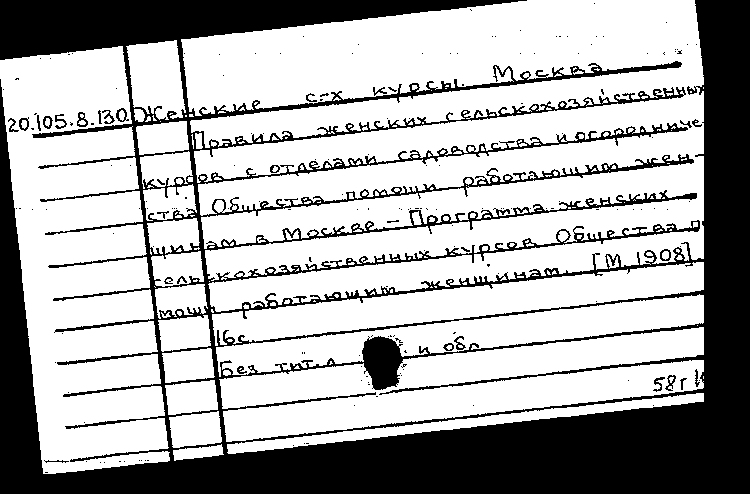 20.105.8.130 Женские с-х курсы. Москва.
Правила женских сельскохозяйственных
курсов с отделами садоводства и огородниче-
ства Общества помощи работающим жен-
щинам в Москве. – Программа женских
сельскохозяйственных курсов Общества по-
мощи работающим женщинам. [М, 1908].
16с.
Без тит. л и обл
58г